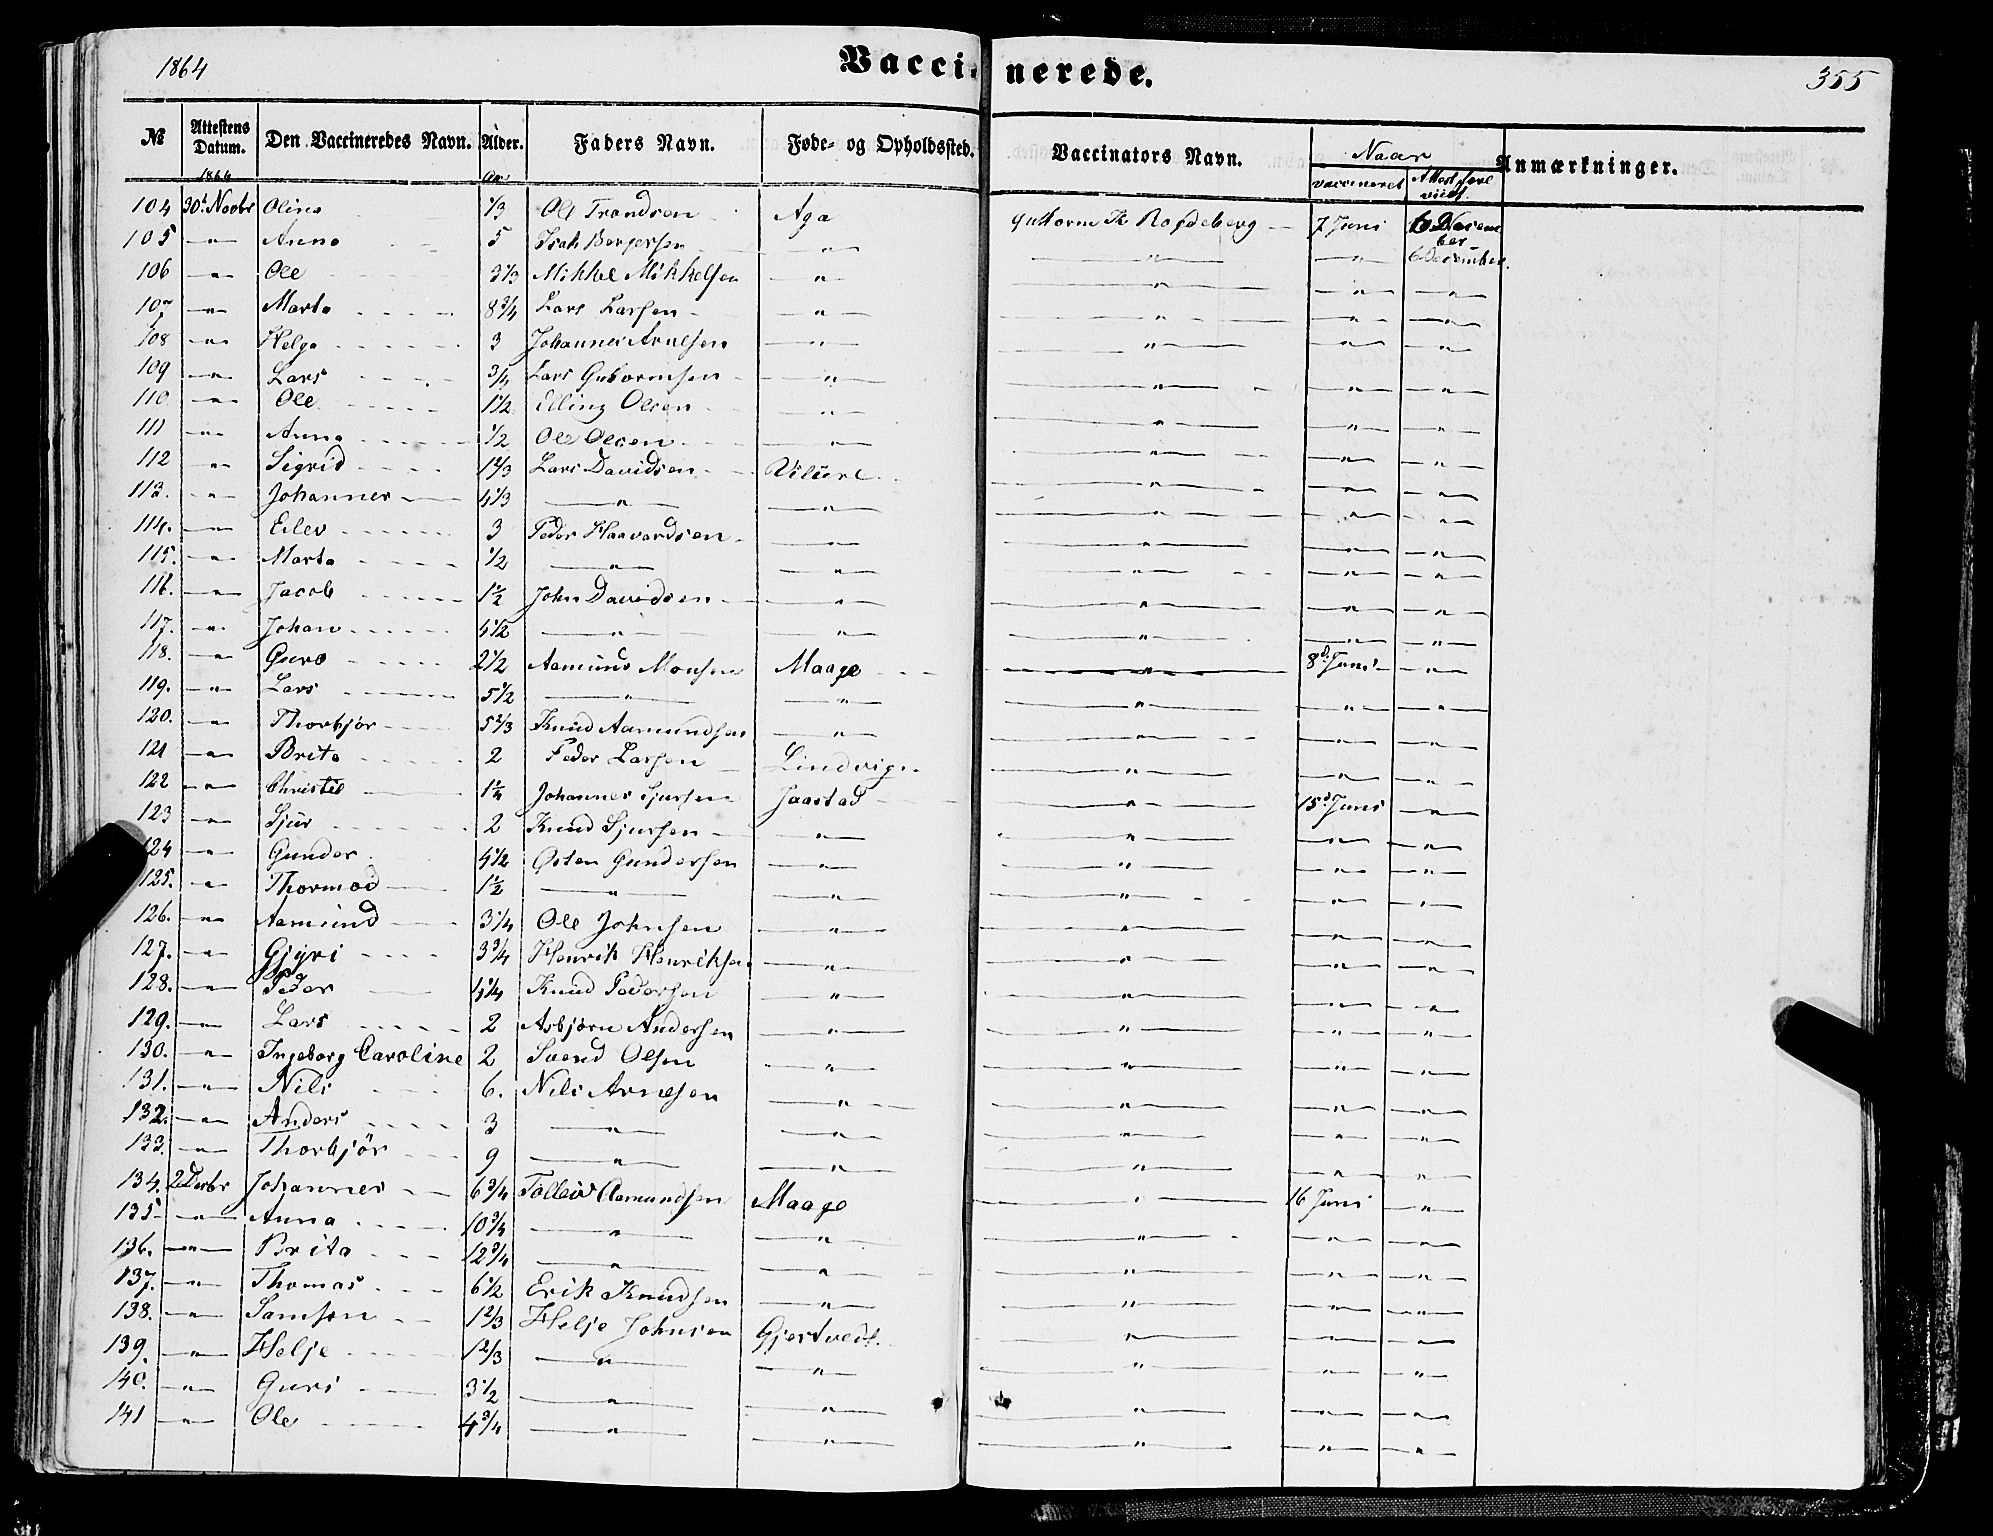 1864 Vaccinerede. 355
№ Attestens Datum. Den Vaccineredes Navn. Alder. Faders Navn. Føde- og Opholdssted. Vaccinators Navn. Naar Anmærkninger.
1864 Aar vaccineret Attest
104 30t Novbr Olina 1/3 Ole Trondsen Aga Guttorm 7 Juni 6
105 " Anna 5 Isak Bergersen " " " 6 December
106 " Ole 3 1/3 Mikkel Mikkelsen " " " "
107 " Marta 8 3/4 Lars Larsen " " " "
108 " Helga 3 Johannes Arnesen " " " "
109 " Lars 3/4 Lars Gutormsen " " " "
110 " Ole 1 1/2 Erling Olsen " " " "
111 " Anna 1/2 Ole Olsen " " " "
112 " Sigrid 1 2/3 Lars Davidsen Vilure " " "
113. " Johannes 4 1/3 " " " " "
114. " Eilev 3 Peder Haavardsen " " " "
115. " Marta 1/2 " " " " "
116. " Jacob 1 1/2 John Davidsen " " " "
117. " Johan 4 1/2 " " " " "
118. " Guro 2 1/2 Aamund Monsen Maage " 8d Juni "
119. " Lars 5 1/2 " " " " "
120. " Thorbjør 5 2/3 Knud Aamundsen " " " "
121 " Brita 2 Peder Larsen Lindvig " " "
122 " Christie 1 1/4 Johannes Sjursen Jaastad " 15d Juni "
123 " Sjur 2 Knud Sjursen " " " "
124 " Gunder 4 1/2 Østen Gundersen " " " "
125. " Thormod 1 1/2 " " " " "
126. " Aamund 3 1/4 Ole Johnsen " " " "
127. " Gjyri 3 3/4 Henrik Henriksen " " " "
128. " Peder 4 1/4 Knud Pedersen " " " "
129. " Lars 2 Asbjørn Andersen " " " "
130. " Ingeborg Caroline 2 Svend Olsen " " " "
131. " Nils 6. Nils Arnesen " " " "
132. " Anders 3 " " " " "
133. " Thorbjör 9 " " " " "
134. 2 Decbr Johannes 6 3/4 Tollev Aamundsen Maage " 16 Juni "
135 " Anna 10 3/4 " " " " "
136. " Brita 12 3/4 " " " " "
137. " Thomas 6 1/2 Erik Knudsen " " " "
138. " Samson 1 2/3 Helje Johnsen Gjertvedt " " "
139. " Helje 1 2/3 " " " " "
140. " Guri 3 1/2 " " " " "
141 " Ole 4 3/4 " " " " "